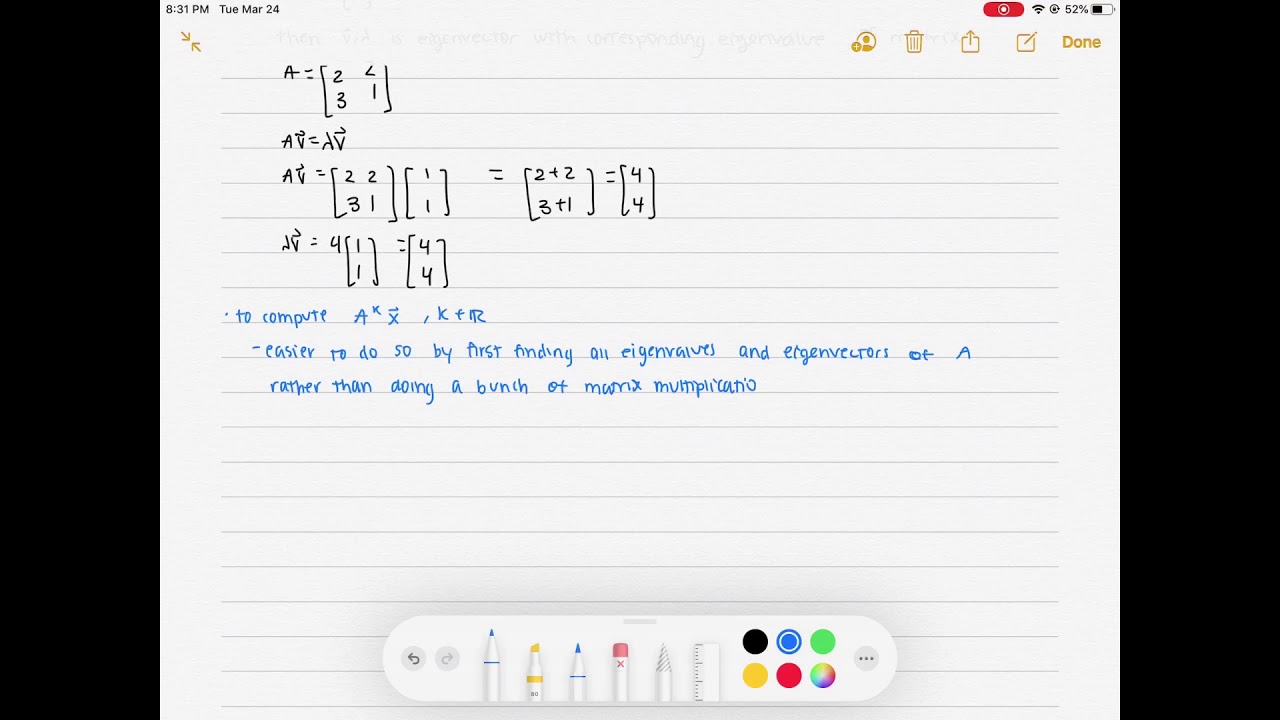 8:31 PM Tue Mar 24 52%
Done
then v, λ is eigenvector with corresponding eigenvalue matrix
A = [2 2
3 1]
Av⃗ = λv⃗
Av⃗ = [2 2 [1 = [2+2 = [4
3 1] 1] 3+1] 4]
λv⃗ = 4[1 = [4
1] 4]
· to compute A^k x⃗ , k ∈ ℝ
- easier to do so by first finding all eigenvalues and eigenvectors of A
rather than doing a bunch of matrix multiplicatio
80